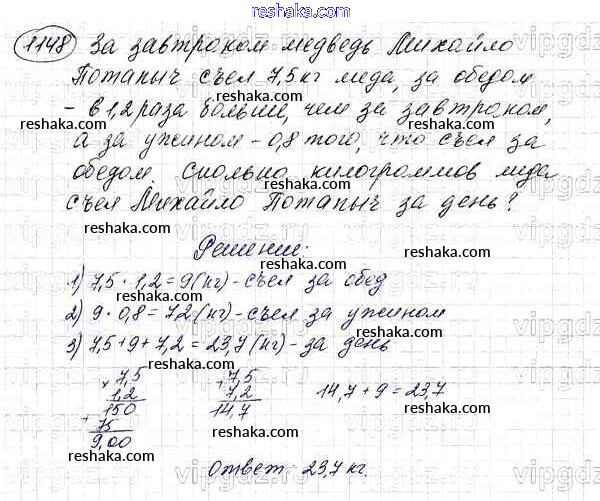 reshaka.com
1148 За завтраком медведь Михайло
Потапыч съел 7,5 кг меда, за обедом
- в 1,2 раза больше, чем за завтраком,
а за ужином - 0,8 того, что съел за
обедом. Сколько килограммов меда
съел Михайло Потапыч за день?
Решение:
1) 7,5 · 1,2 = 9 (кг) - съел за обед
2) 9 · 0,8 = 7,2 (кг) - съел за ужином
3) 7,5 + 9 + 7,2 = 23,7 (кг) - за день
× 7,5
1,2
150
+ 75
9,00
+ 7,5
7,2
14,7
14,7 + 9 = 23,7
Ответ: 23,7 кг.
reshaka.com
reshaka.com
reshaka.com
reshaka.com
reshaka.com
reshaka.com
reshaka.com
reshaka.com
reshaka.com
reshaka.com
reshaka.com
vipgdz